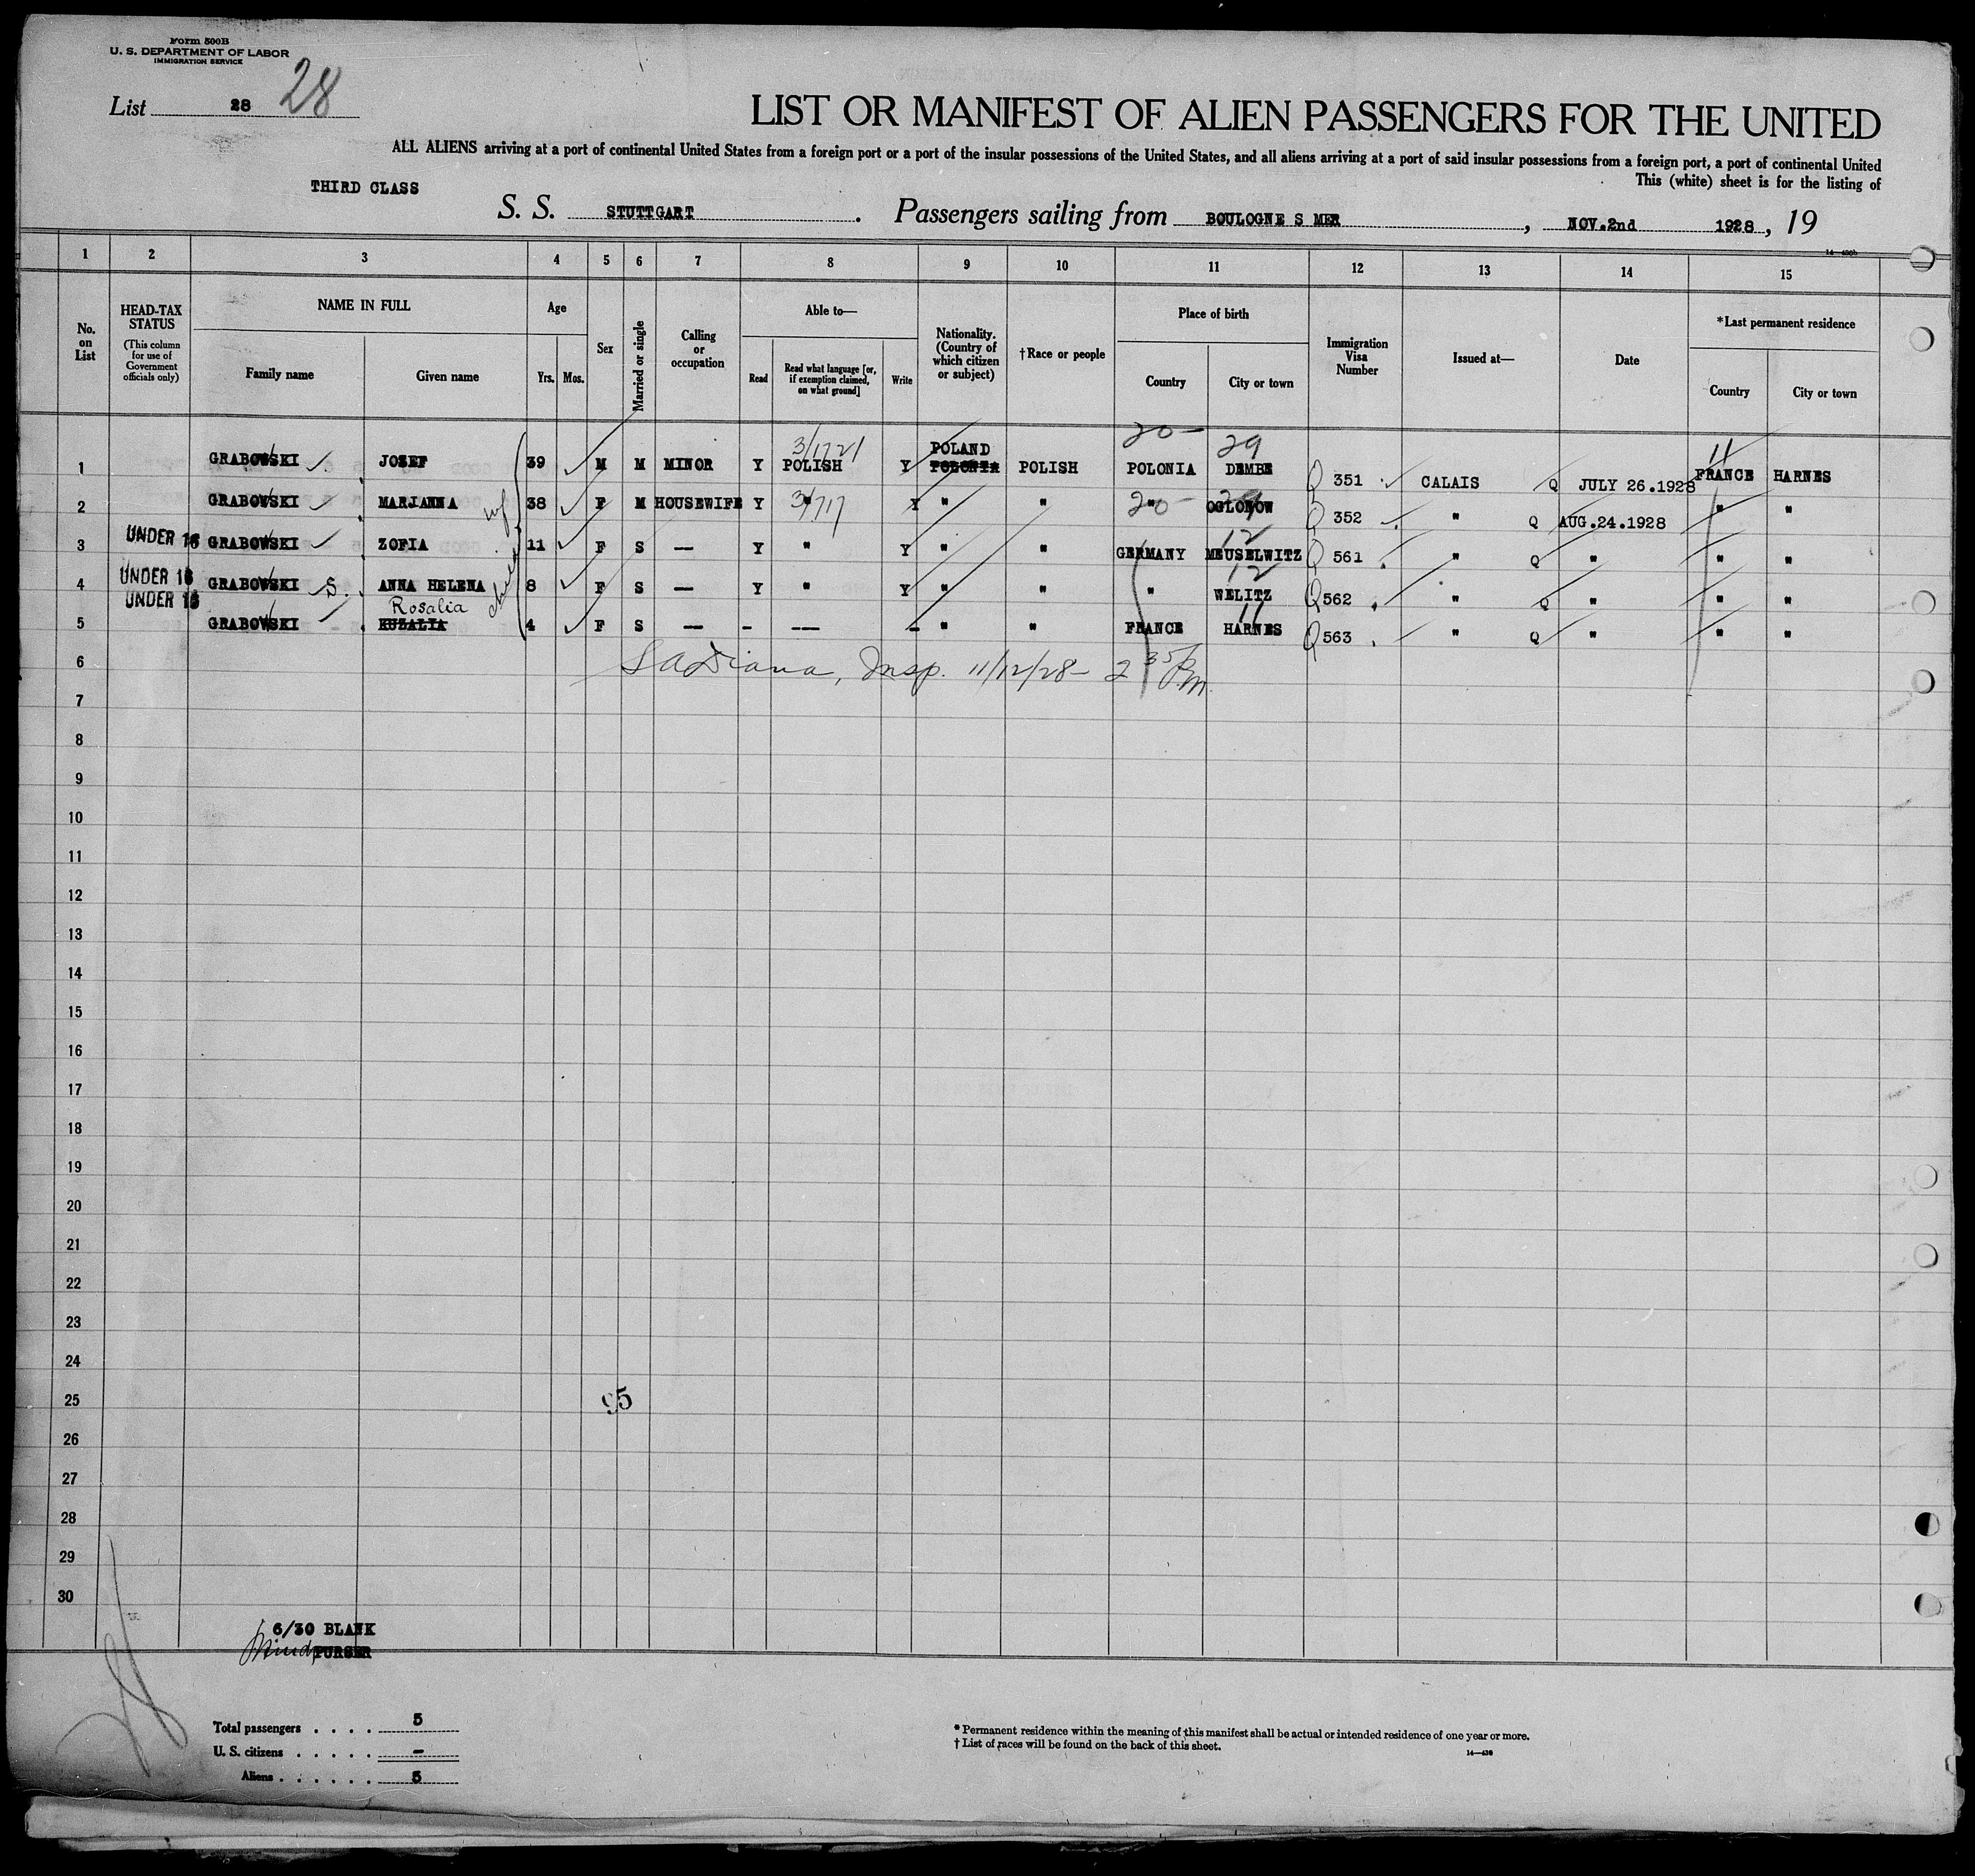 Form 500B
U. S. DEPARTMENT OF LABOR
IMMIGRATION SERVICE
List 28 28
LIST OR MANIFEST OF ALIEN PASSENGERS FOR THE UNITED
ALL ALIENS arriving at a port of continental United States from a foreign port or a port of the insular possessions of the United States, and all aliens arriving at a port of said insular possessions from a foreign port, a port of continental United
This (white) sheet is for the listing of
THIRD CLASS
S. S. STUTTGART. Passengers sailing from BOULOGNE S MER, NOV.2nd 1928, 19
1 2 3 4 5 6 7 8 9 10 11 12 13 14 15
No. on List
HEAD-TAX STATUS (This column for use of Government officials only)
NAME IN FULL
Family name Given name
Age
Yrs. Mos.
Sex
Married or single
Calling or occupation
Able to—
Read Read what language [or, if exemption claimed, on what ground] Write
Nationality. (Country of which citizen or subject)
†Race or people
Place of birth
Country City or town
Immigration Visa Number
Issued at—
Date
*Last permanent residence
Country City or town
3/1721 POLAND 20- 29 11
1 GRABOWSKI JOZEF 39 M M MINOR Y POLISH Y POLONIA POLISH POLONIA DEMBE Q 351 CALAIS Q JULY 26.1928 FRANCE HARNES
2 GRABOWSKI MARJANNA wf 38 F M HOUSEWIFE Y " 3/717 Y " " " 20- OGLONOW 29 Q 352 " Q AUG.24.1928 " "
3 UNDER 16 GRABOWSKI ZOFIA 11 F S — Y " Y " " GERMANY MEUSELWITZ 12 Q 561 " Q " " "
4 UNDER 16 GRABOWSKI S. ANNA HELENA 8 F S — Y " Y " " " WELITZ 12 Q 562 " Q " " "
UNDER 16 Rosalia
5 GRABOWSKI RUZALIA 4 F S — - — - " " FRANCE HARNES 11 Q 563 " Q " " "
6 Insp. 11/12/28 - 2 35 P.m.
7
8
9
10
11
12
13
14
15
16
17
18
19
20
21
22
23
24
25 95
26
27
28
29
30
6/30 BLANK
PURSER
Total passengers . . . . 5
U. S. citizens . . . . . —
Aliens . . . . . . 5
* Permanent residence within the meaning of this manifest shall be actual or intended residence of one year or more.
† List of races will be found on the back of this sheet.
14—430